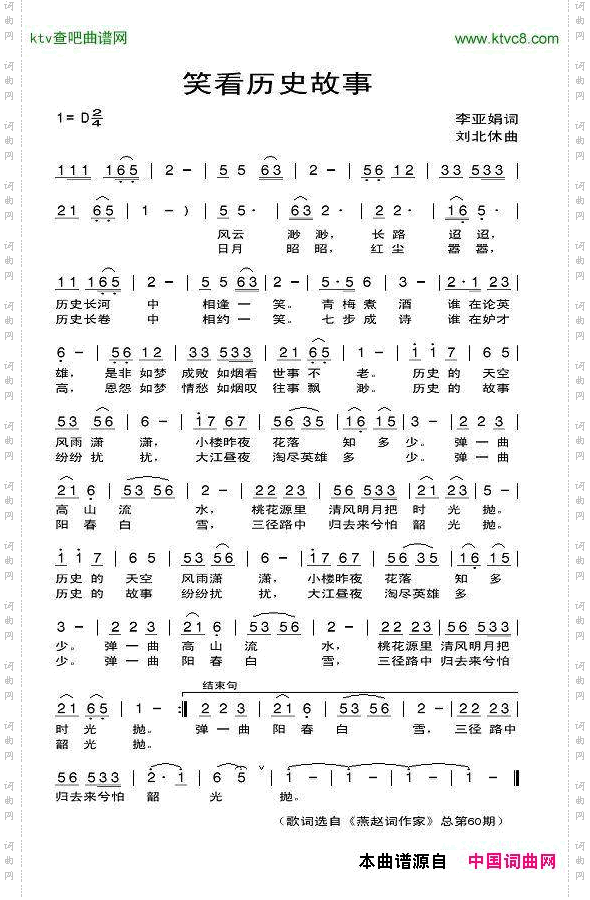 ktv查吧曲谱网 www.ktvc8.com
笑看历史故事
1=D2/4 李亚娟词
刘北休曲
111 165 | 2 - | 5 5 63 | 2 - | 56 12 | 33 533 |
21 65 | 1 - ) | 5 5· | 63 2· | 2 2· | 16 5· |
风云 渺渺， 长路 迢迢，
日月 昭昭， 红尘 嚣嚣，
111 165 | 2 - | 55 63 | 2 - | 5·5 6 | 3 - | 2·1 23 |
历史长河 中 相逢一 笑。 青梅煮 酒 谁在论英
历史长卷 中 相约一 笑。 七步成 诗 谁在妒才
6 - | 56 12 | 33 533 | 22 65 | 1 - | 1 1 7 | 6 5 |
雄， 是非如梦 成败如烟看 世事不 老。 历史的 天空
高， 恩怨如梦 情愁如烟叹 往事飘 渺。 历史的 故事
53 56 | 6 - | 17 67 | 56 35 | 16 15 | 3 - | 2 2 3 |
风雨潇 潇， 小楼昨夜 花落 知多 少。 弹一曲
纷纷扰 扰， 大江昼夜 淘尽英雄 多 少。 弹一曲
21 6 | 53 56 | 2 - | 22 23 | 56 533 | 21 23 | 5 - |
高山流 水， 桃花源里 清风明月把 时光 抛。
阳春白 雪， 三径路中 归去来兮怕 韶光 抛。
1 1 7 | 6 5 | 53 56 | 6 - | 17 67 | 56 35 | 16 15 |
历史的 天空 风雨潇 潇， 小楼昨夜 花落 知多
历史的 故事 纷纷扰 扰， 大江昼夜 淘尽英雄 多
3 - | 2 2 3 | 21 6 | 53 56 | 2 - | 22 23 | 56 533 |
少。 弹一曲 高山流 水， 桃花源里 清风明月把
少。 弹一曲 阳春白 雪， 三径路中 归去来兮怕
结束句
21 65 | 1 - :‖ 2 2 3 | 21 6 | 53 535 | 2 - | 2 2 3 |
时光 抛。 弹一曲 阳春白 雪， 三径路中
韶光 抛。
56 533 | 2· 1 | 6 5 ∨ | 1 - | 1 - | 1 - | 1 - ‖
归去来兮怕 韶光 抛。
（歌词选自《燕赵词作家》总第60期）
本曲谱源自 中国词曲网